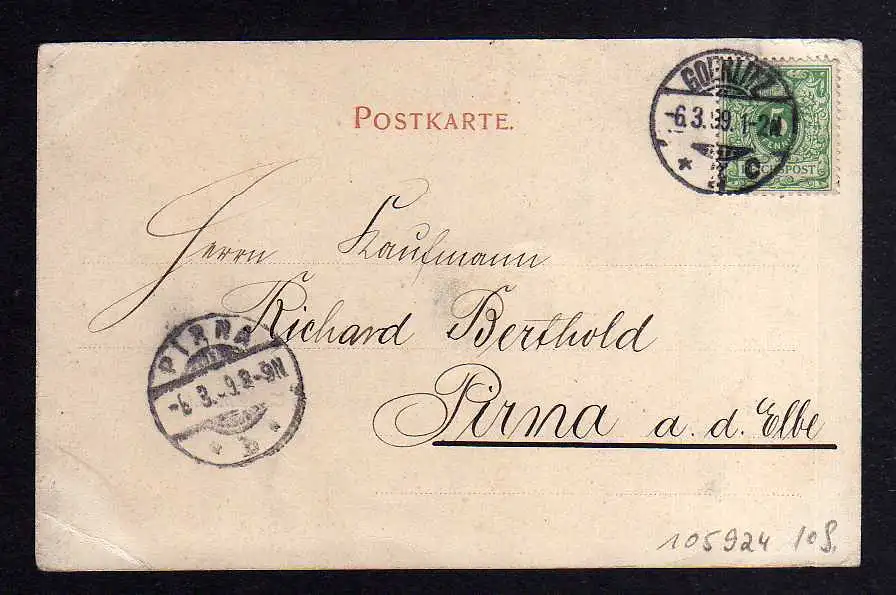 POSTKARTE.
GOERLITZ
-6.3.99.1-2N
* C
PFENNIG
REICHSPOST
Herrn Kaufmann
Richard Berthold
Pirna a. d. Elbe
PIRNA
-6.3.-9.8-9N
* b *
105924 10S.